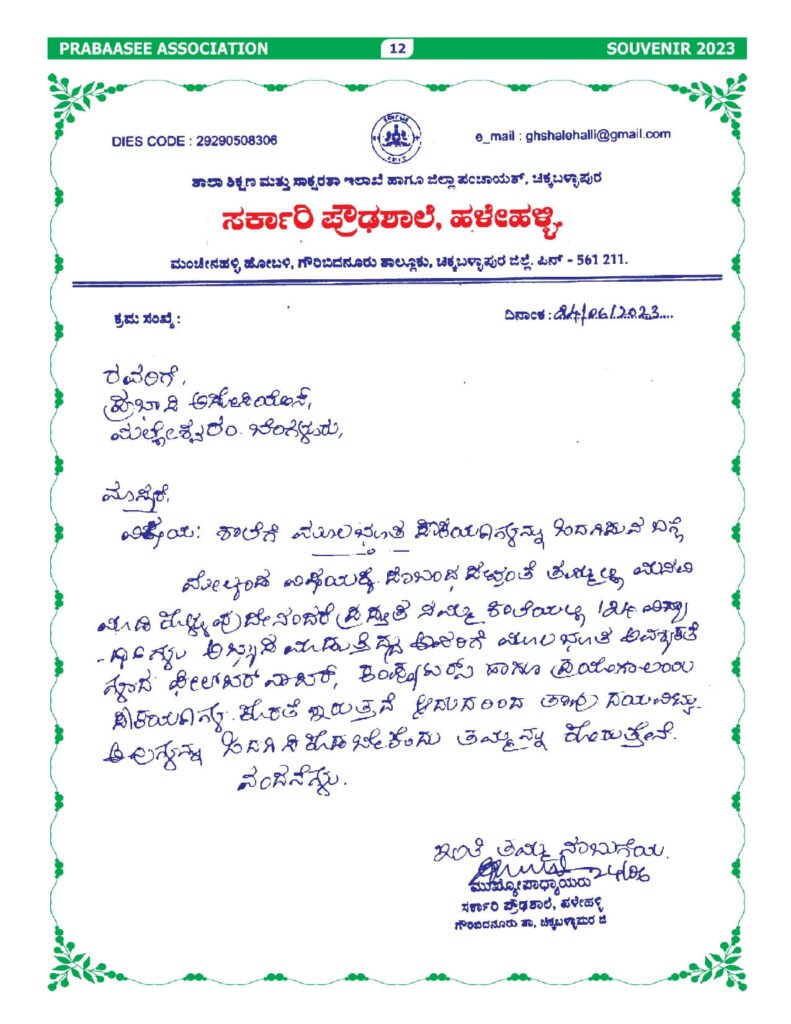 PRABAASEE ASSOCIATION 12 SOUVENIR 2023
DIES CODE : 29290508306
e_mail : ghshalehalli@gmail.com
ಶಾಲಾ ಶಿಕ್ಷಣ ಮತ್ತು ಸಾಕ್ಷರತಾ ಇಲಾಖೆ ಹಾಗೂ ಜಿಲ್ಲಾ ಪಂಚಾಯತ್, ಚಿಕ್ಕಬಳ್ಳಾಪುರ
ಸರ್ಕಾರಿ ಪ್ರೌಢಶಾಲೆ, ಹಳೇಹಳ್ಳಿ.
ಮಂಚೇನಹಳ್ಳಿ ಹೋಬಳಿ, ಗೌರಿಬಿದನೂರು ತಾಲ್ಲೂಕು, ಚಿಕ್ಕಬಳ್ಳಾಪುರ ಜಿಲ್ಲೆ. ಪಿನ್ - 561 211.
ಕ್ರಮ ಸಂಖ್ಯೆ :
ದಿನಾಂಕ : 24/06/2023....
ರವರಿಗೆ,
ಪ್ರಬಾಸಿ ಅಸೋಸಿಯೇಸ್,
ಮಲ್ಲೇಶ್ವರಂ. ಬೆಂಗಳೂರು,
ಮಾನ್ಯರೆ,
ವಿಷಯ: ಶಾಲೆಗೆ ಮೂಲಭೂತ ಸೌಕರ್ಯಗಳನ್ನು ಒದಗಿಸುವ ಬಗ್ಗೆ
ಮೇಲ್ಕಂಡ ವಿಷಯಕ್ಕೆ ಸಂಬಂಧಿಸಿದಂತೆ ತಮ್ಮಲ್ಲಿ ಮನವಿ
ಮಾಡಿ ಕೊಳ್ಳುವುದೇನೆಂದರೆ ಪ್ರಸ್ತುತ ನಮ್ಮ ಶಾಲೆಯಲ್ಲಿ 124 ವಿದ್ಯಾ
-ರ್ಥಿಗಳು ಅಭ್ಯಾಸ ಮಾಡುತ್ತಿದ್ದು ಅವರಿಗೆ ಮೂಲಭೂತ ಅವಶ್ಯಕತೆ
ಗಳಾದ ಹಾಗೂ ಪ್ರಯೋಗಾಲಯ
ಸೌಕರ್ಯಗಳ ಕೊರತೆ ಇರುತ್ತದೆ ಆದುದರಿಂದ ತಾವು ದಯವಿಟ್ಟು
ಅವುಗಳನ್ನು ಒದಗಿಸಿಕೊಡಬೇಕೆಂದು ತಮ್ಮನ್ನು ಕೋರುತ್ತೇನೆ.
ವಂದನೆಗಳು.
ಇಂತಿ ತಮ್ಮ ನಂಬುಗೆಯ.
24/06
ಮುಖ್ಯೋಪಾಧ್ಯಾಯರು
ಸರ್ಕಾರಿ ಪ್ರೌಢಶಾಲೆ, ಹಳೇಹಳ್ಳಿ
ಗೌರಿಬಿದನೂರು ತಾ, ಚಿಕ್ಕಬಳ್ಳಾಪುರ ಜಿ